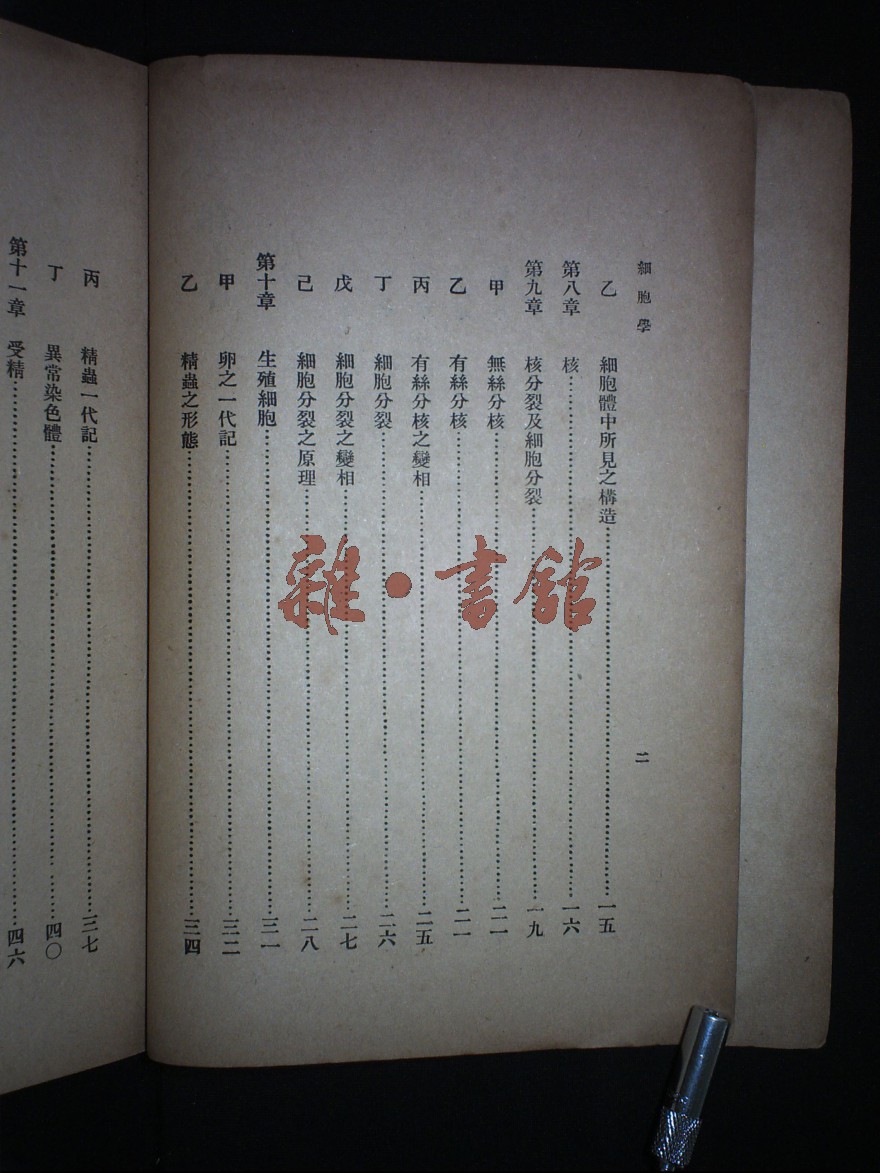 細胞學
二
乙　細胞體中所見之構造……一五
第八章　核……一六
第九章　核分裂及細胞分裂……一九
甲　無絲分核……二一
乙　有絲分核……二一
丙　有絲分核之變相……二五
丁　細胞分裂……二六
戊　細胞分裂之變相……二七
己　細胞分裂之原理……二八
第十章　生殖細胞……三一
甲　卵之一代記……三二
乙　精蟲之形態……三四
丙　精蟲一代記……三七
丁　異常染色體……四〇
第十一章　受精……四六
雜·書館